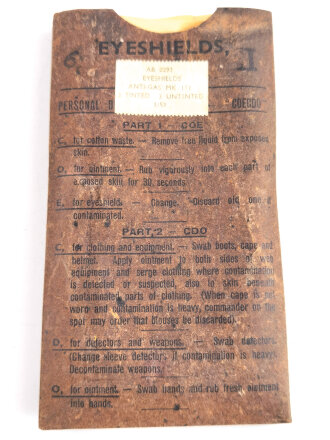 EYESHIELDS,
6, II
AB 0293
EYESHIELDS
ANTI-GAS MK III
TINTED UNTINTED
PERSONAL COEODO
PART 1 - COE
C, for cotton waste. - Remove free liquid from exposed
skin.
O, for ointment. - Rub vigorously into each part of
exposed skin for 30 seconds.
E, for eyeshield. - Change. Discard old one if
contaminated.
PART 2 - CDO
C, for clothing and equipment. - Swab boots, cape and
helmet. Apply ointment to both sides of web
equipment and serge clothing where contamination
is detected or suspected, also to skin beneath
contaminated parts of clothing. (When cape is not
worn and contamination is heavy, commander on the
spot may order that blouses be discarded).
D, for detectors and weapons. - Swab detectors.
(Change sleeve detectors if contamination is heavy).
Decontaminate weapons.
O, for ointment. - Swab hands and rub fresh ointment
into hands.